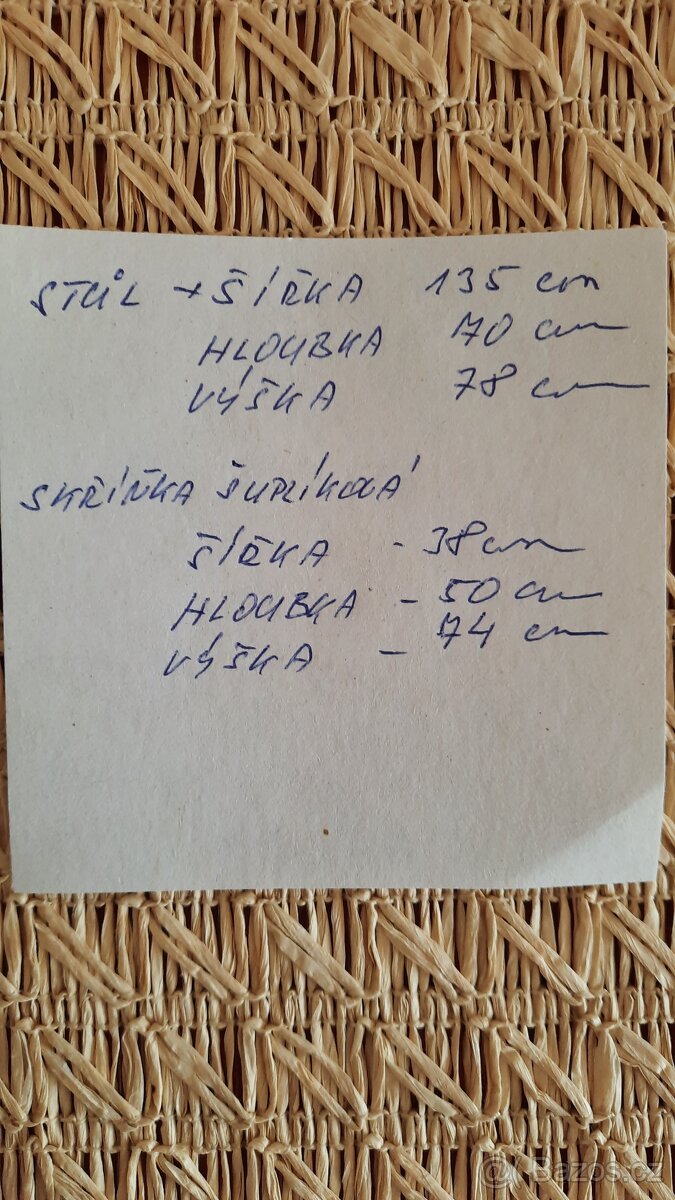 STŮL + ŠÍŘKA 135 cm
HLOUBKA 70 cm
VÝŠKA 78 cm
SKŘÍŇKA ŠUPLÍKOVÁ
ŠÍŘKA - 38 cm
HLOUBKA - 50 cm
VÝŠKA - 74 cm
@ Bazos.cz